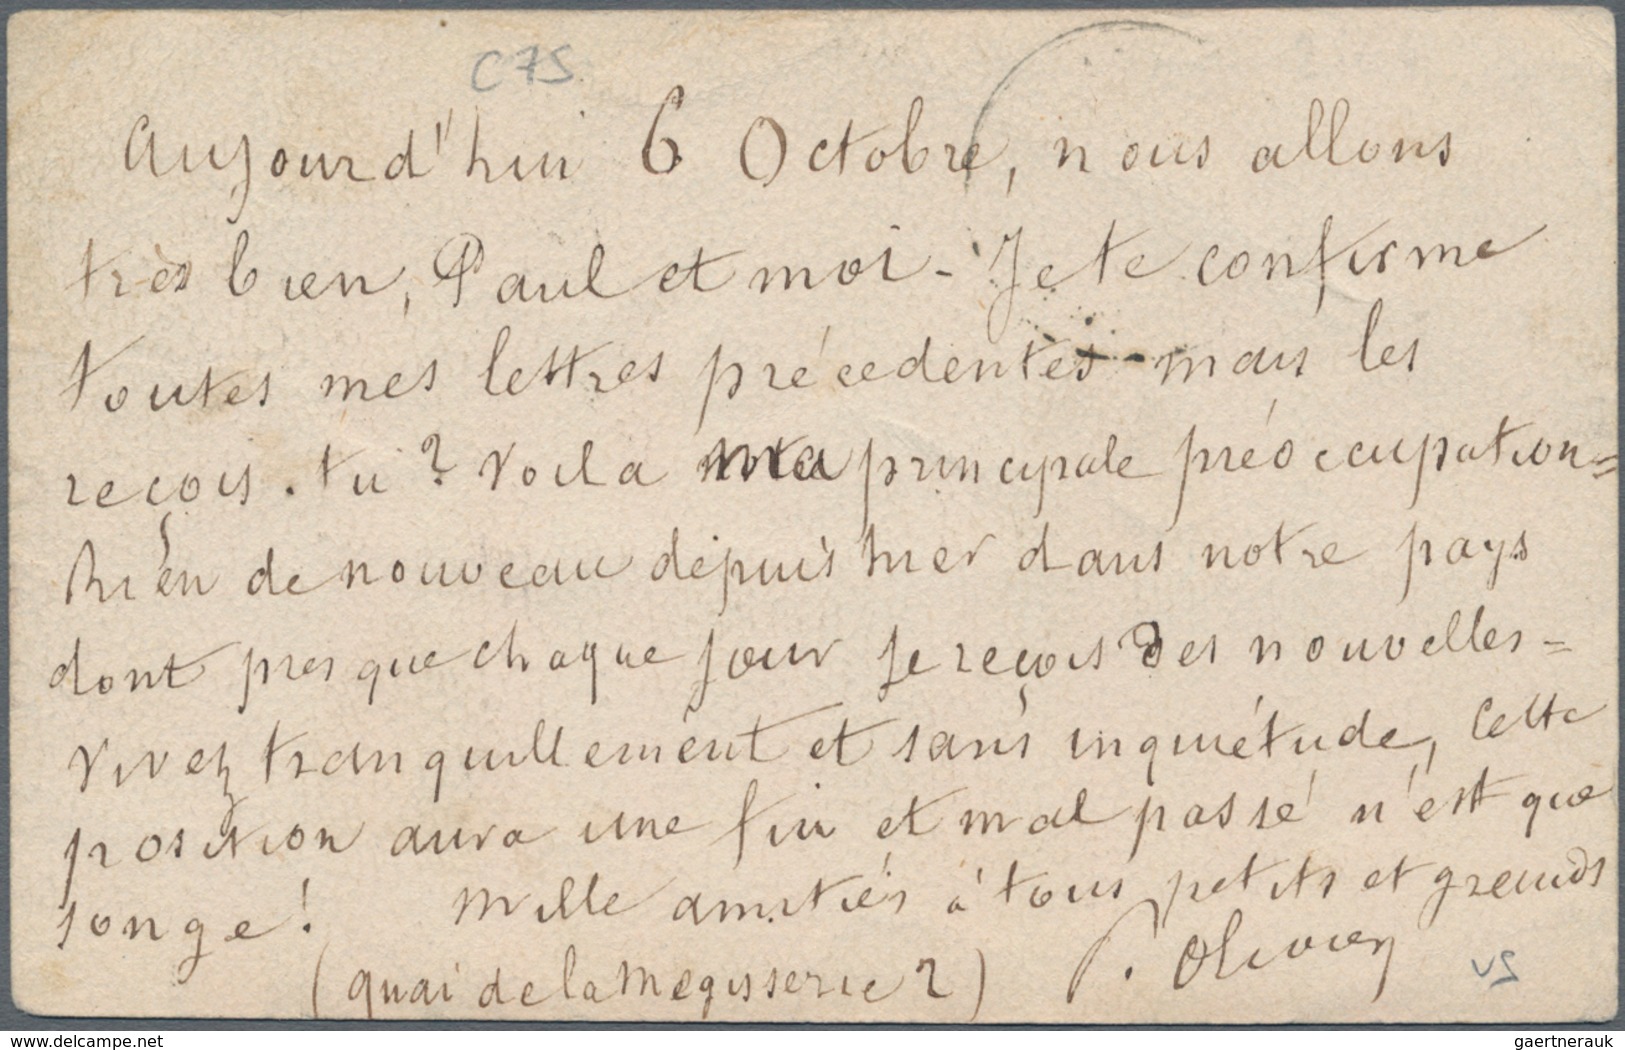 C75
Aujourd'hui 6 Octobre, nous allons
très bien, Paul et moi - Je te confirme
toutes mes lettres précedentes - mais les
reçois-tu? Voila ma principale préoccupation =
Rien de nouveau depuis hier dans notre pays
dont presque chaque jour je reçois des nouvelles =
Vivez tranquillement et sans inquiétude, cette
position aura une fin et mal passé n'est que
songe! Mille amitiés à tous petits et grands
(quai de la Megisserie 2) P. Olivier
VS
www.delcampe.net
gaertnerauk